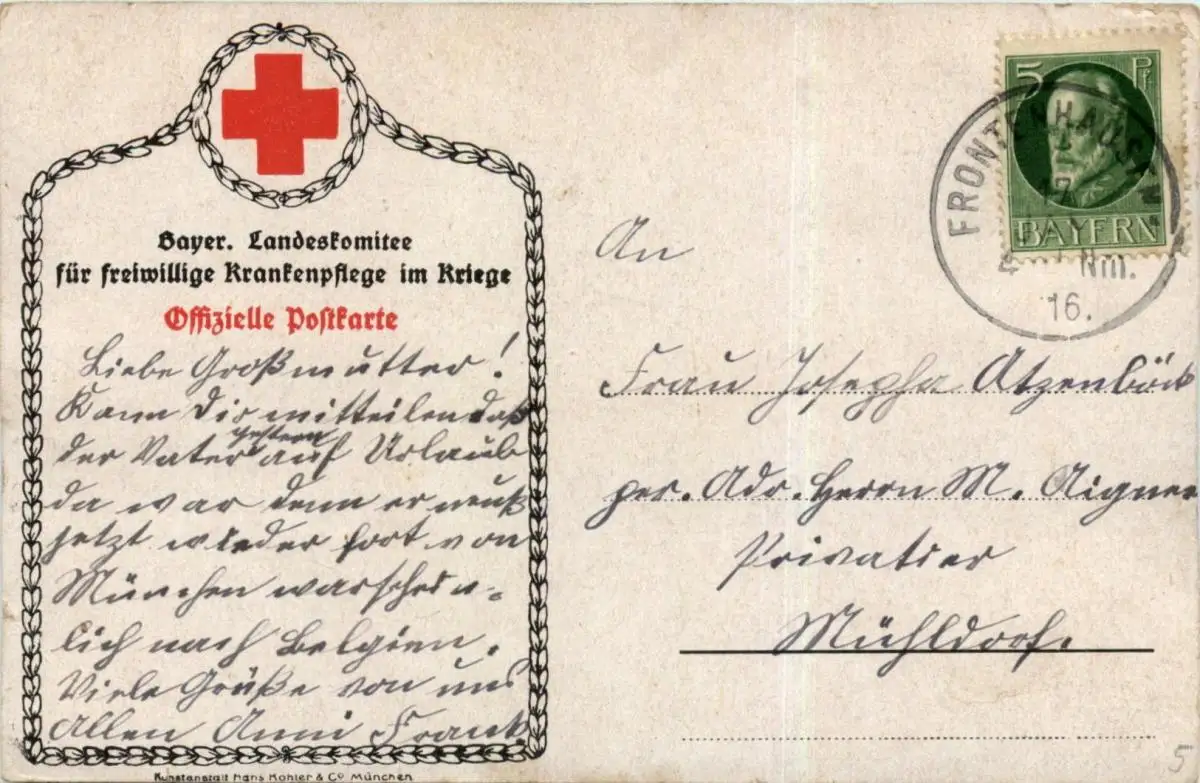 Bayer. Landeskomitee
für freiwillige Krankenpflege im Kriege
Offizielle Postkarte
Liebe Großmutter!
Kann Dir mitteilen daß
der Vater gestern auf Urlaub
da war denn er muß
jetzt wieder fort von
München warschein-
lich nach Belgien.
Viele Grüße von uns
Allen Anni Frank
Kunstanstalt Hans Kohler & Co München
5 Pf
BAYERN
FRONTENHAUSEN
17
Nm.
16.
An
Frau Josepha Atzenböck
per. Adr. Herrn M. Aigner
Privatier
Mühldorf.
5